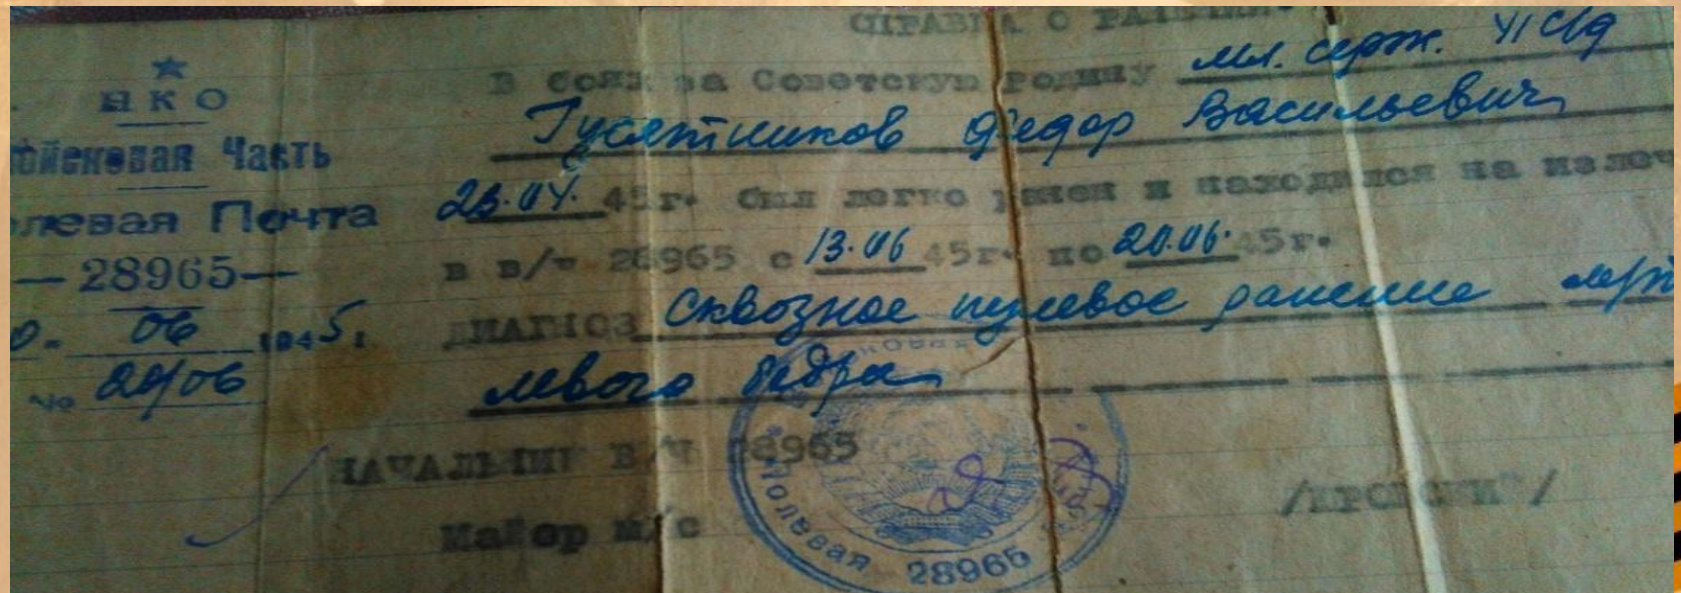 СПРАВКА О РАНЕНИИ
★
НКО
Войсковая Часть
Полевая Почта
— 28965 —
06 1945 г
№ 2906
В боях за Советскую родину мл. серж.
Гусятников Федор Васильевич
23.04. 45г. был легко ранен и находился на излеч
в в/ч 28965 с 13.06 45г. по 20.06. 45г.
ДИАГНОЗ Сквозное пулевое ранение
левого бедра
НАЧАЛЬНИК В/Ч 28965
Майор м/с
Полевая 28965